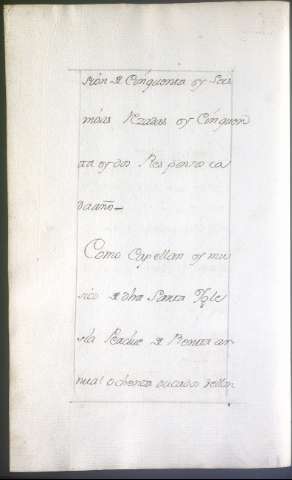 sion de Cinquenta y seis
mais Rzadas y Cinquen
ta y dos Res porto ca
da año
Como Capellan y mu
sico de dha Santa Ygle
sia Radue de Renta an
nual ochenta ducados vellon